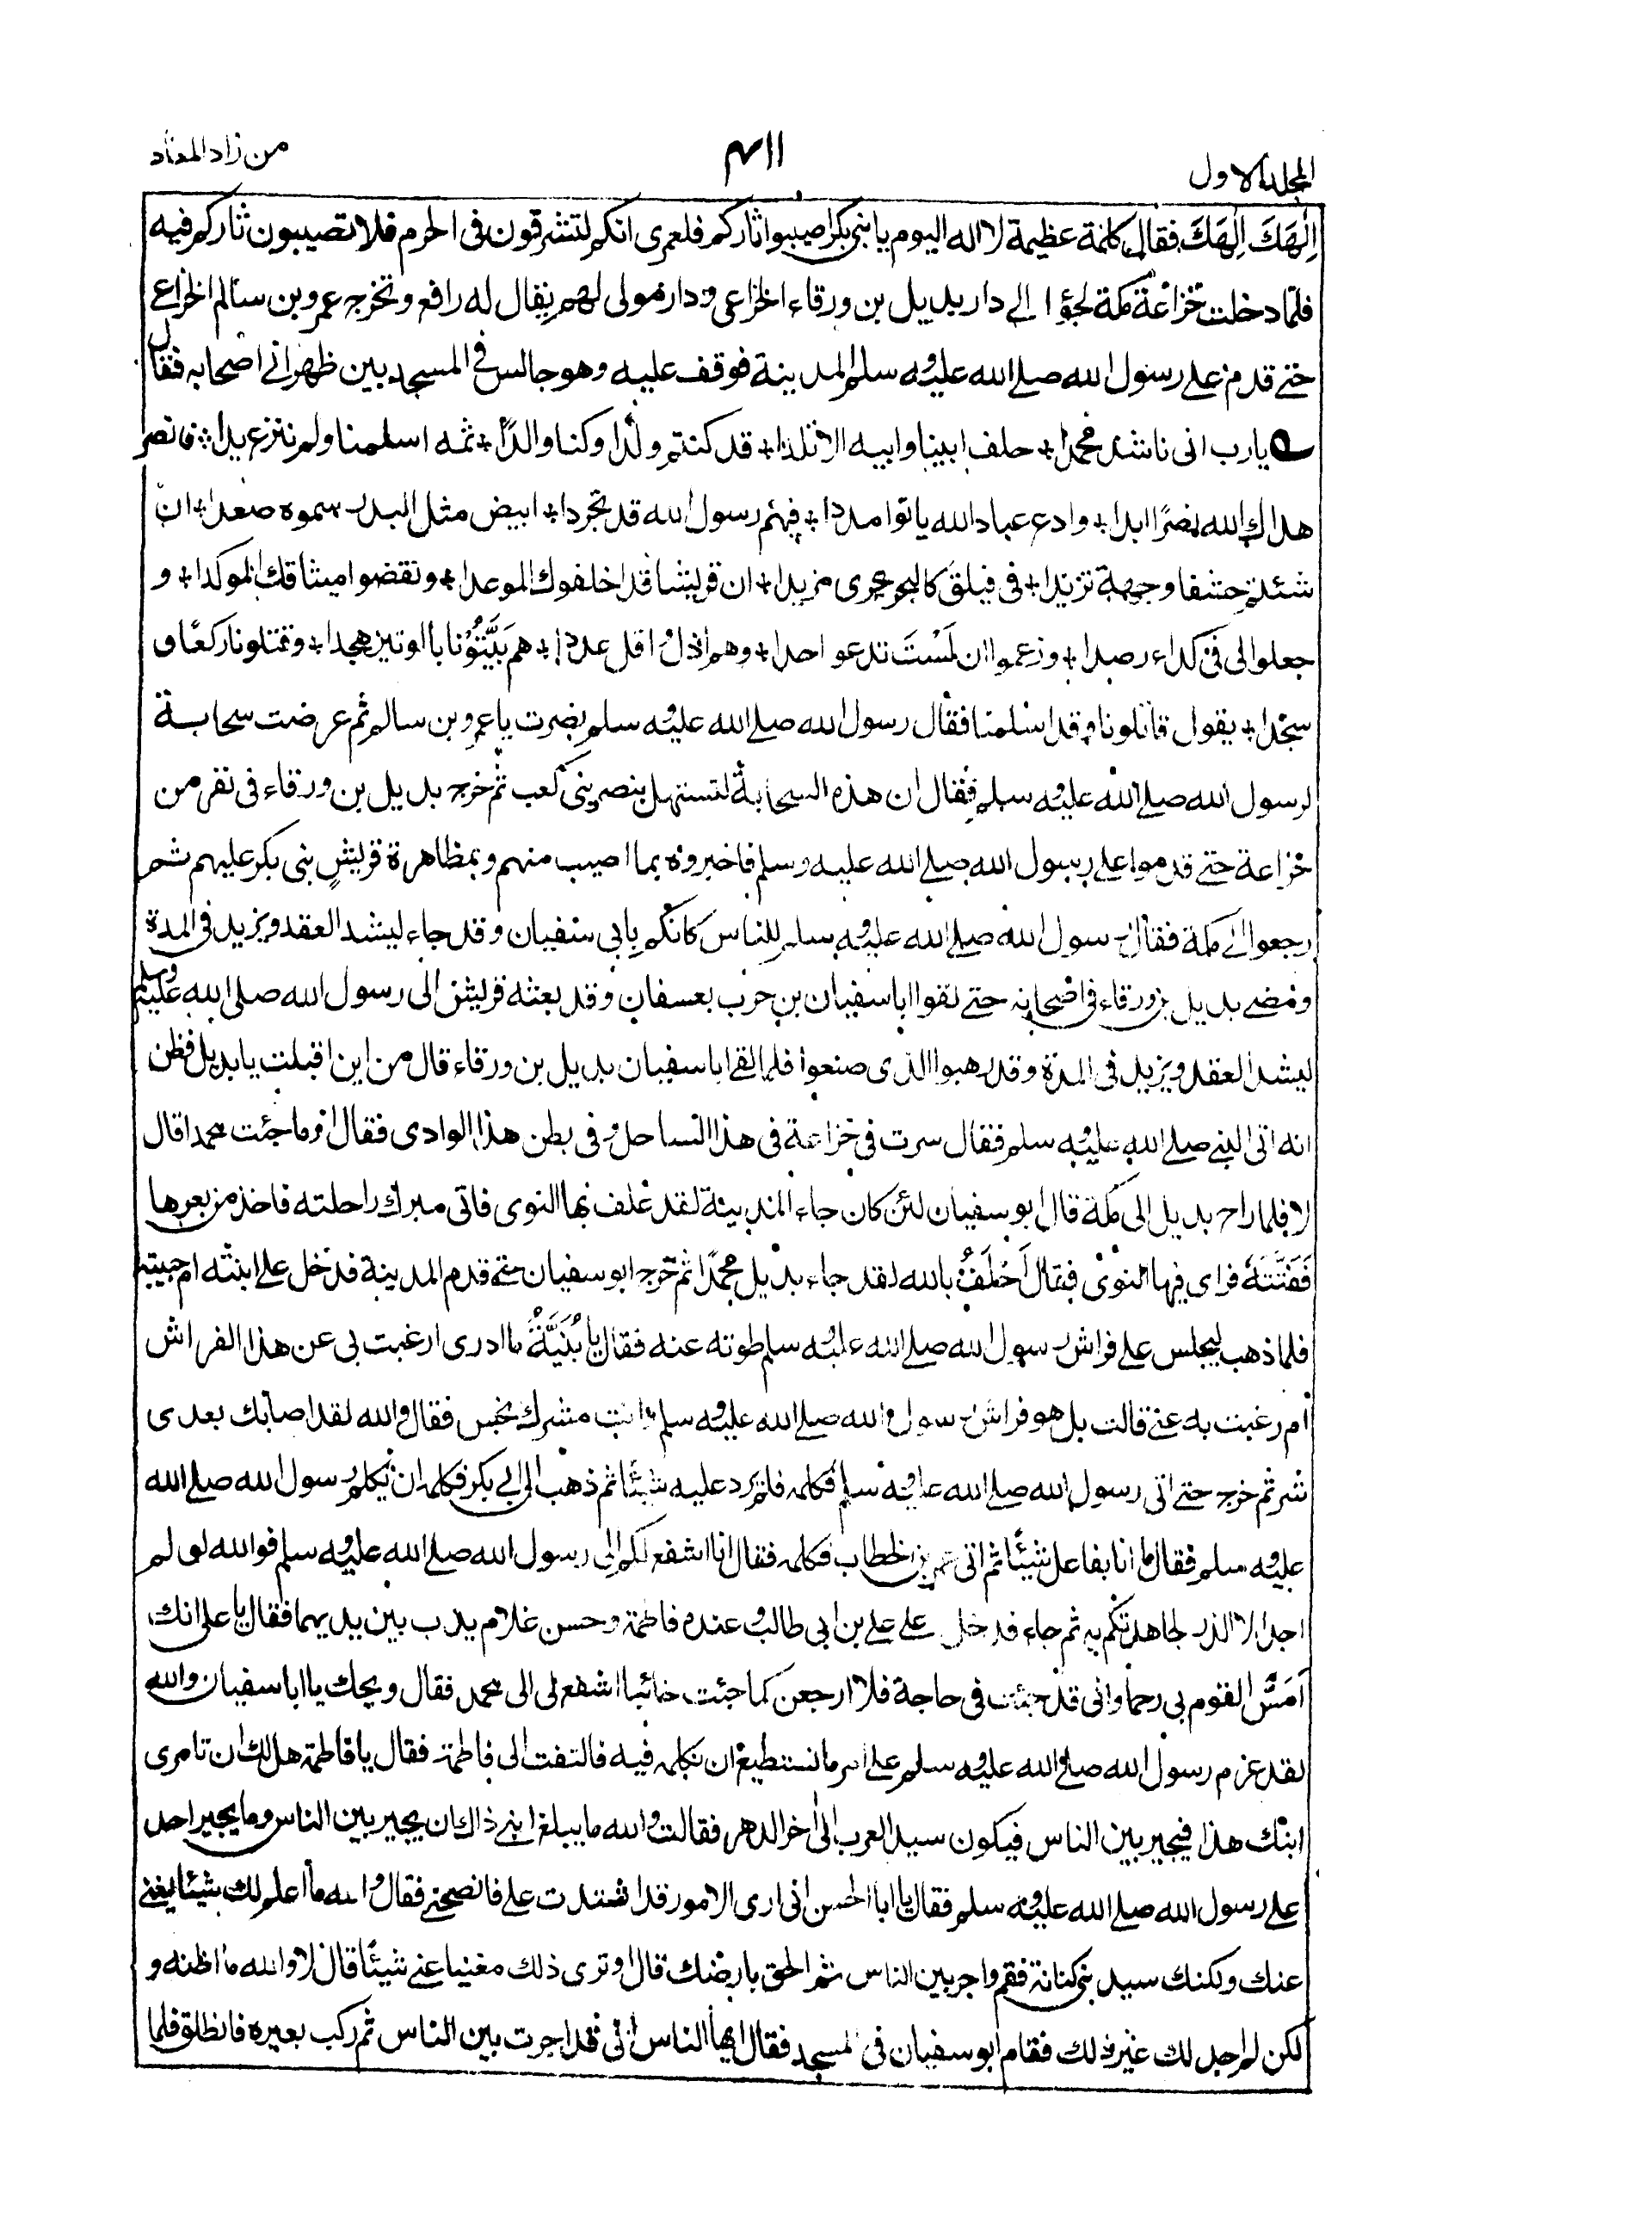 المجلد الاول
٤١١
من زاد المعاد
اِلٰهَكَ اِلٰهَكَ فقال كلمة عظيمة لا اله اليوم يا بنى بكر اصيبوا ثاركم فلعمرى انكم لتسرقون فى الحرم فلا تصيبون ثاركم فيه
فلما دخلت خزاعة مكة لجؤا الى دار بديل بن ورقاء الخزاعى ودار مولى لهم يقال له رافع وتخرج عمرو بن سالم الخزاعى
حتى قدم على رسول الله صلى الله عليه وسلم المدينة فوقف عليه وهو جالس فى المسجد بين ظهرانى اصحابه فقال
يا رب انى ناشد محمدا + حلف ابينا وابيه الاتلدا + قد كنتم ولدا وكنا والدا + ثمه اسلمنا ولم ننزع يدا + فانصر
هداك الله نصرا ابدا + وادع عباد الله ياتوا مددا + فيهم رسول الله قد تجردا + ابيض مثل البدر سموه صعدا + ان
شئلتم حشفا وجهة تزبدا + فى فيلق كالبحر يجرى مزبدا + ان قريشا قد اخلفوك الموعدا + ونقضوا ميثاقك الموكدا + و
جعلوا لى فى كداء رصدا + وزعموا ان لَسْتَ تدعو احدا + وهم اذل واقل عددا + هم بَيَّتُوْنا بالوتير هجدا + وقتلونا ركعا و
سجدا + يقول قاتلونا وقد اسلمنا فقال رسول الله صلى الله عليه وسلم نصرت يا عمرو بن سالم ثم عرضت سحابة
لرسول الله صلى الله عليه وسلم فقال ان هذه السحابة لتستهل بنصر بنى كعب ثم خرج بديل بن ورقاء فى نفر من
خزاعة حتى قدموا على رسول الله صلى الله عليه وسلم فاخبروه بما اصيب منهم وبمظاهرة قريش بنى بكر عليهم ثم
رجعوا الى مكة فقال رسول الله صلى الله عليه وسلم للناس كانكم بابى سفيان وقد جاء ليشد العقد ويزيد فى المدة
ومضى بديل بن ورقاء فى اصحابه حتى لقوا ابا سفيان بن حرب بعسفان وقد بعثه قريش الى رسول الله صلى الله عليه وسلم
ليشد العقد ويزيد فى المدة وقد رهبوا الذى صنعوا فلما لقى ابا سفيان بديل بن ورقاء قال من اين اقبلت يا بديل فظن
انه اتى النبى صلى الله عليه وسلم فقال سرت فى خزاعة فى هذا الساحل وفى بطن هذا الوادى فقال او ما جئت محمدا قال
لا فلما راح بديل الى مكة قال ابو سفيان لئن كان جاء المدينة لقد علف بها النوى فاتى مبرك راحلته فاخذ من بعرها
فَفَتَّتَهٗ فراى فيها النوى فقال اَحْلَفُ بالله لقد جاء بديل محمدا ثم خرج ابو سفيان حتى قدم المدينة فدخل على ابنته ام حبيبة
فلما ذهب ليجلس على فراش رسول الله صلى الله عليه وسلم طوته عنه فقال يا بُنَيَّةُ ما ادرى ارغبت بى عن هذا الفراش
ام رغبت به عنى قالت بل هو فراش رسول الله صلى الله عليه وسلم وانت مشرك نجس فقال والله لقد اصابك بعدى
شر ثم خرج حتى اتى رسول الله صلى الله عليه وسلم فكلمه فلم يرد عليه شيئا ثم ذهب الى ابى بكر فكلمه ان يكلم رسول الله صلى الله
عليه وسلم فقال ما انا بفاعل شيئا ثم اتى عمر بن الخطاب فكلمه فقال انا اشفع لكم الى رسول الله صلى الله عليه وسلم فوالله لو لم
اجد الا الذر لجاهدتكم به ثم جاء فدخل على على بن ابى طالب وعنده فاطمة وحسن غلام يدب بين يديهما فقال يا على انك
اَمَسُّ القوم بى رحما وانى قد جئت فى حاجة فلا ارجعن كما جئت خائبا اشفع لى الى محمد فقال ويحك يا ابا سفيان والله
لقد عزم رسول الله صلى الله عليه وسلم على امر ما نستطيع ان نكلمه فيه فالتفت الى فاطمة فقال يا فاطمة هل لك ان تامرى
ابنك هذا فيجير بين الناس فيكون سيد العرب الى اخر الدهر فقالت والله ما يبلغ ابنى ذاك ان يجير بين الناس وما يجير احد
على رسول الله صلى الله عليه وسلم فقال يا ابا الحسن انى ارى الامور قد اشتدت على فانصحنى فقال والله ما اعلم لك شيئا يغنى
عنك ولكنك سيد بنى كنانة فقم واجر بين الناس ثم الحق بارضك قال او ترى ذلك مغنيا عنى شيئا قال لا والله ما اظنه و
لكن لم اجد لك غير ذلك فقام ابو سفيان فى المسجد فقال ايها الناس انى قد اجرت بين الناس ثم ركب بعيره فانطلق فلما